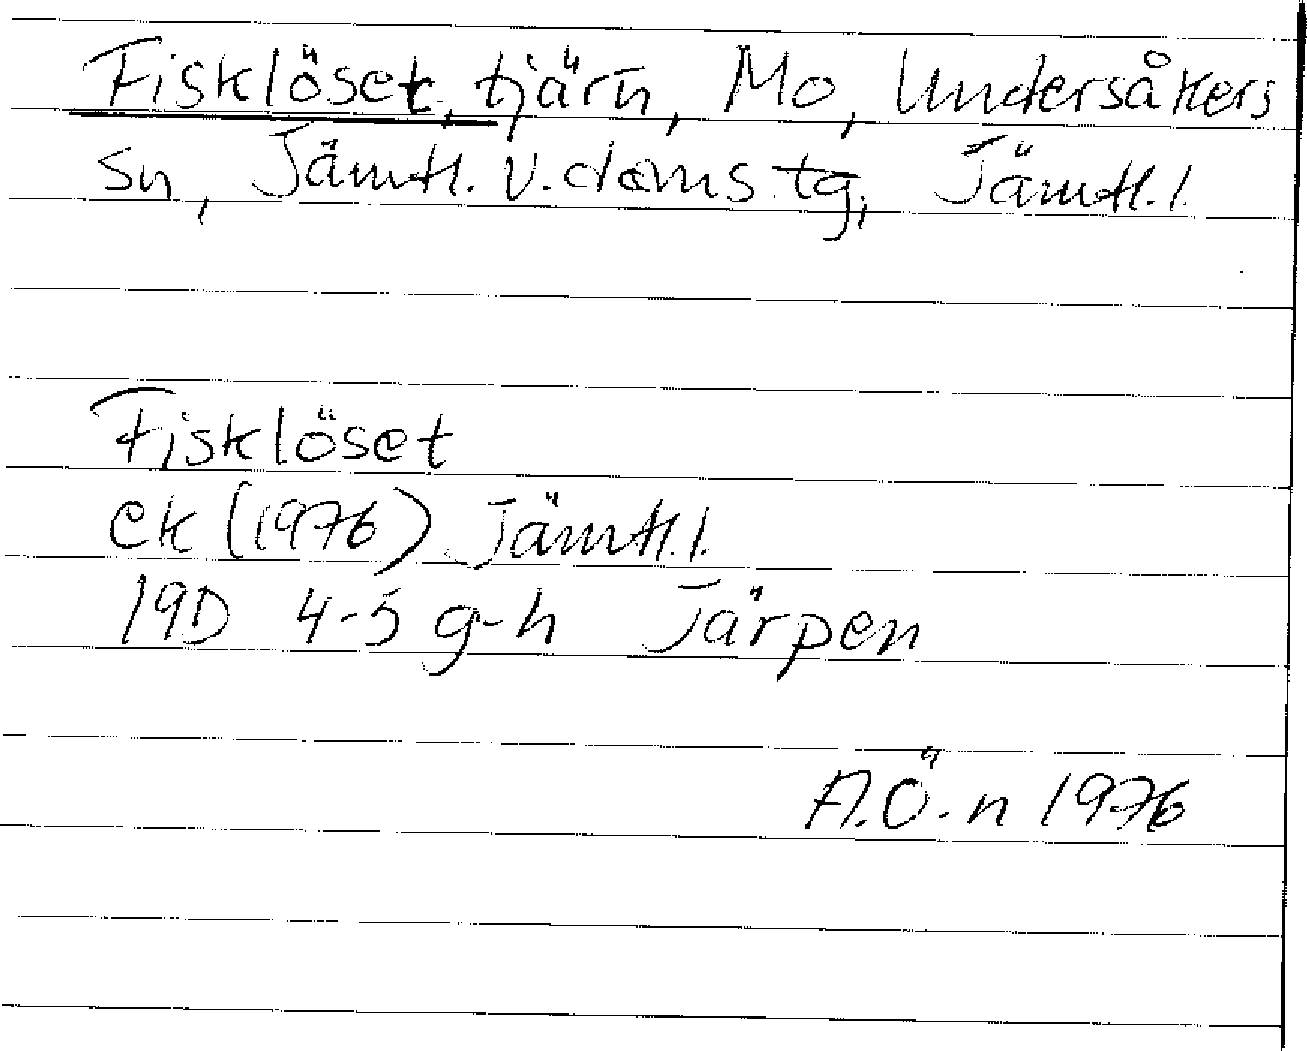 Fisklöset, tjärn, Mo, Undersåkers
sn, Jämtl. v. doms.tg, Jämtl. l.
Fisklöset
ek (1976) Jämtl. l.
19D 4-5 g-h Järpen
A.Ö-n 1976